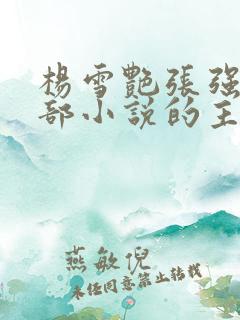 楊雪艷張强
部小説的主
燕敏倪
未经同意禁止转载